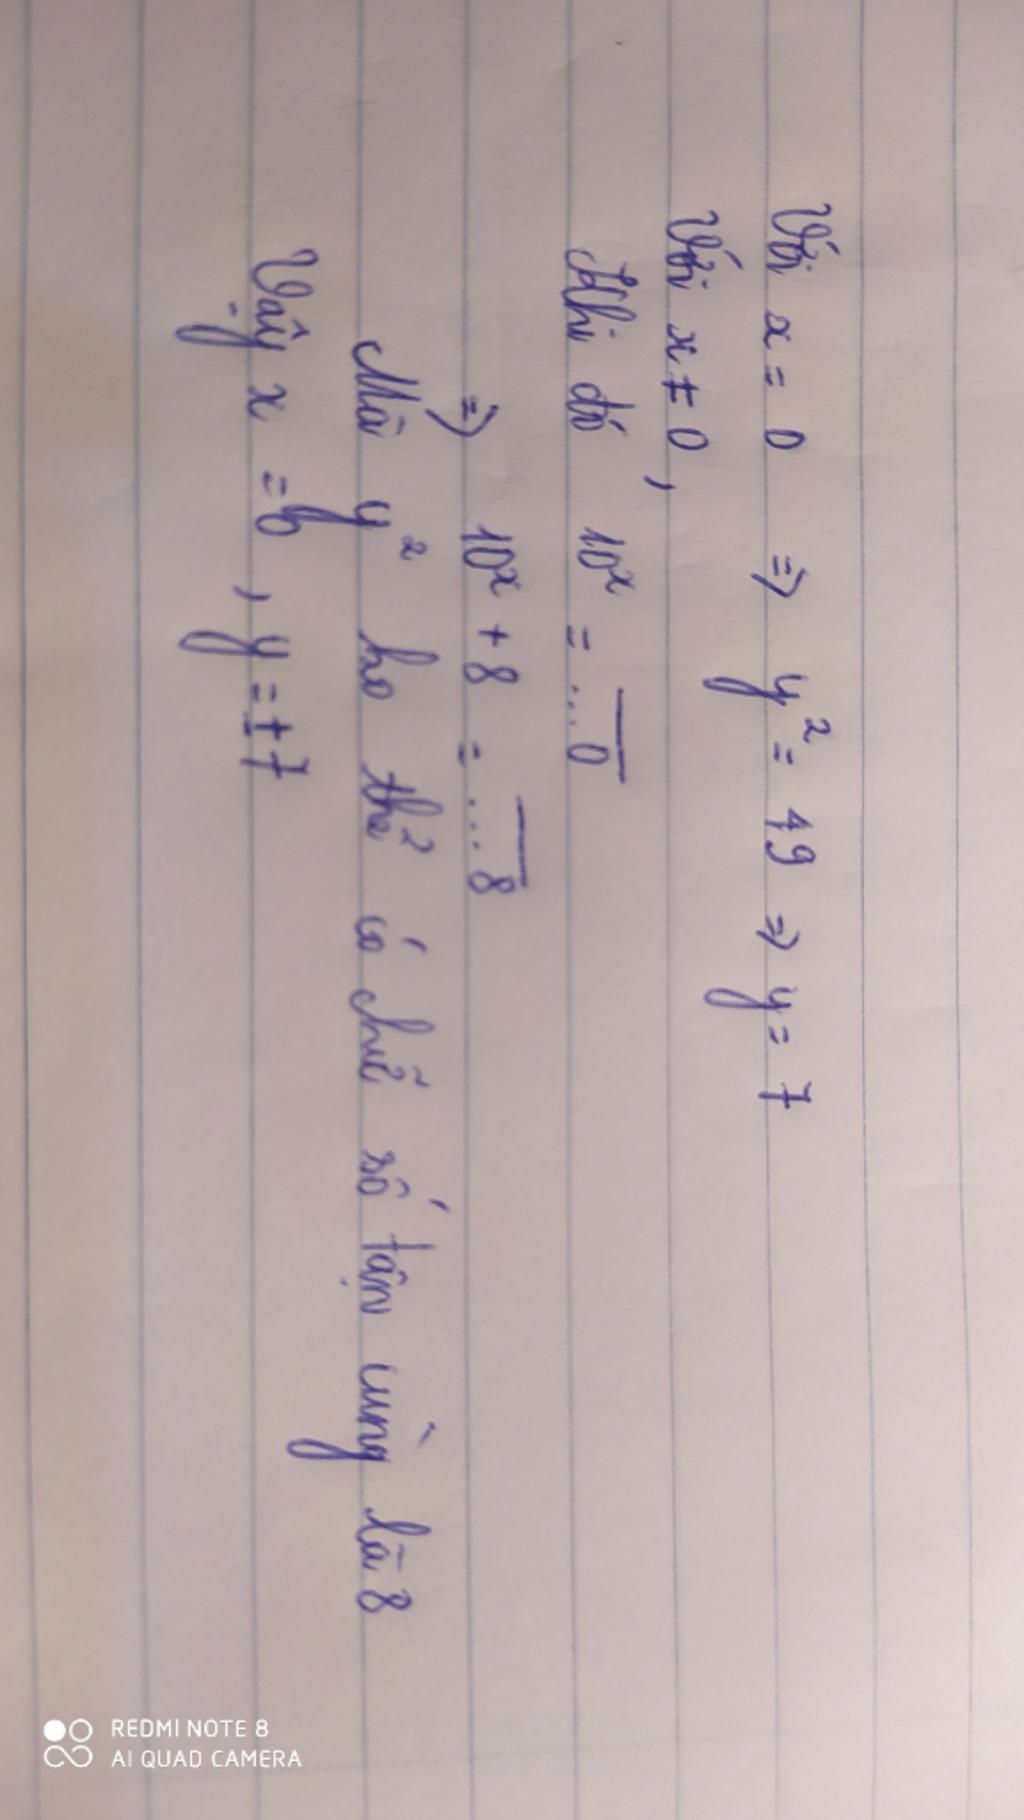 Với x = 0 => y² = 49 => y = 7
Với x ≠ 0,
Khi đó 10ˣ = \overline{...0}
=> 10ˣ + 8 = \overline{...8}
Mà y² ko thể có chữ số tận cùng là 8
Vậy x = 0, y = 7
REDMI NOTE 8
AI QUAD CAMERA